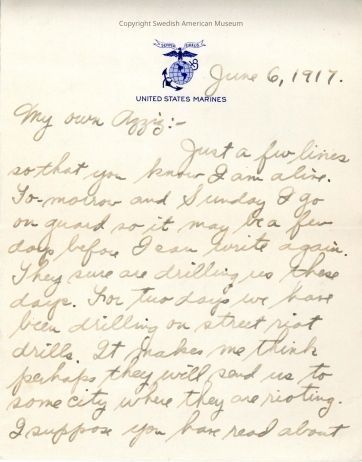 Copyright Swedish American Museum
SEMPER FIDELIS
June 6, 1917.
UNITED STATES MARINES
My own Azziz:-
Just a few lines
so that you know I am alive.
To-morrow and Sunday I go
on guard so it may be a few
days before I can write again.
They sure are drilling us these
days. For two days we have
been drilling on street riot
drills. It makes me think
perhaps they will send us to
some city where they are rioting.
I suppose you have read about